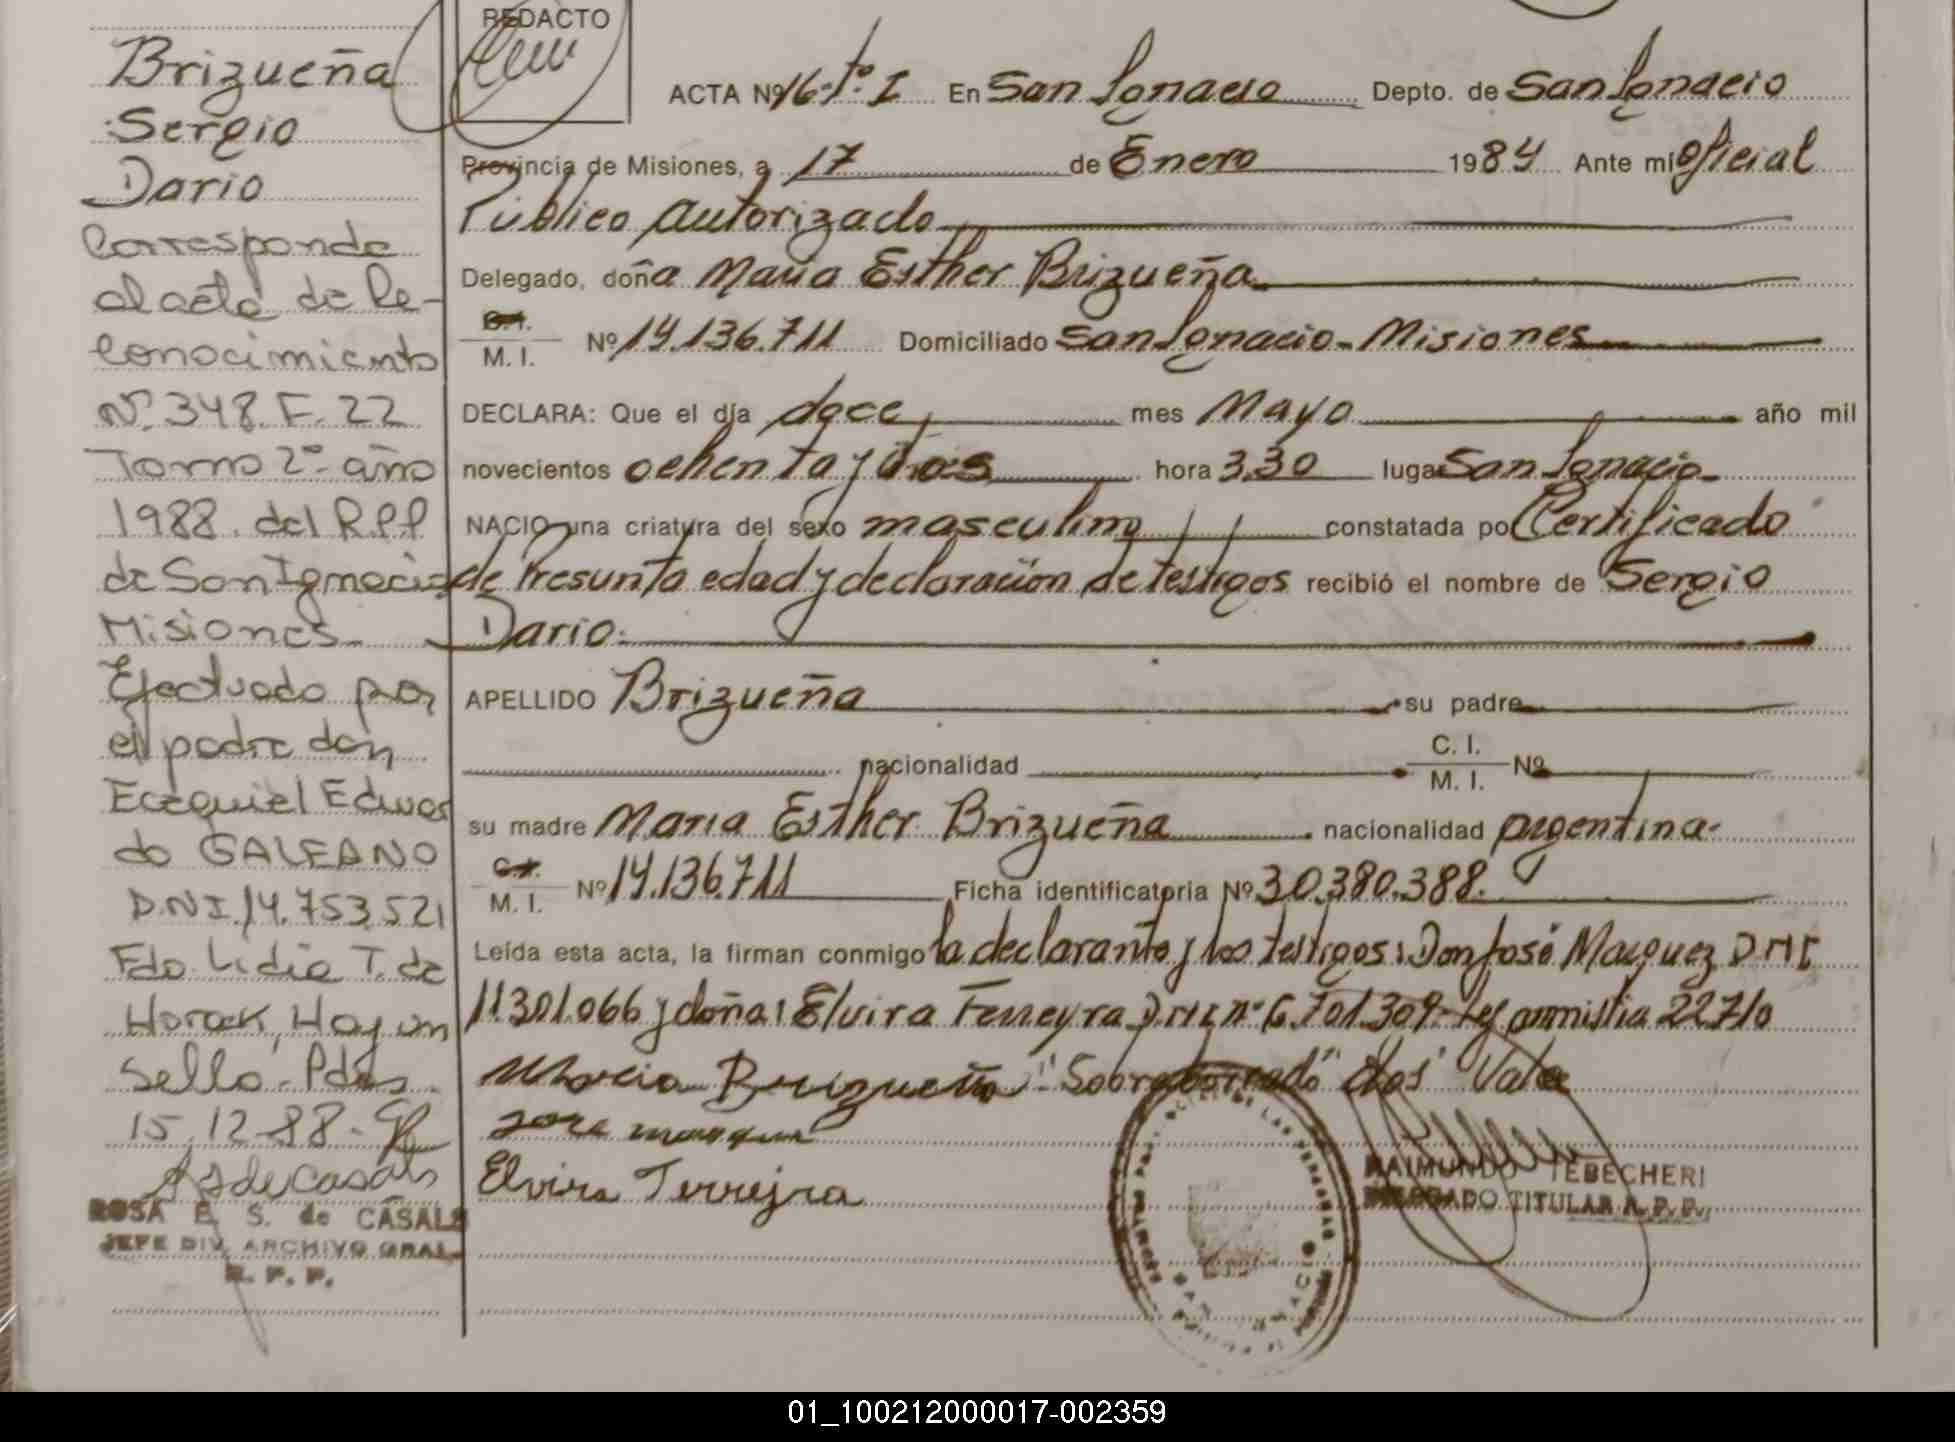 Brizueña
Sergio
Dario
Corresponde
al acta de Re-
conocimiento
Nº 348. F. 22
Tomo 2º año
1988. del R.P.P
de San Ignacio
Misiones
Efectuado por
el padre don
Ecequiel Eduar
do GALEANO
D.N.I. 14.753.521
Fdo. Lidia T. de
Horack, Hay un
Sello. Pdas.
15.12.88-
ROSA E. S. de CASALS
JEFE DIV. ARCHIVO GRAL.
R. P. P.
REDACTO
ACTA Nº 16-Tº I En San Ignacio Depto. de San Ignacio
Provincia de Misiones, a 17 de Enero 1984 Ante mí oficial
Público Autorizado
Delegado, doña Maria Esther Brizueña
C.I.
M. I. Nº 14.136.711 Domiciliado San Ignacio - Misiones
DECLARA: Que el día doce mes Mayo año mil
novecientos ochenta y dos hora 3,30 lugar San Ignacio
NACIO una criatura del sexo masculino constatada por Certificado
de Presunta edad y declaración de testigos recibió el nombre de Sergio
Dario.
APELLIDO Brizueña su padre
nacionalidad C. I.
M. I. Nº
su madre Maria Esther Brizueña nacionalidad argentina.
C.I.
M. I. Nº 14.136.711 Ficha identificatoria Nº 30.380.388.
Leída esta acta, la firman conmigo la declarante y los testigos: Don José Marquez DNI
11.301.066 y doña: Elvira Ferreyra D.N.I. nº 6.701.309 - Ley amnistia 22710
Maria Brizueña "Sobreborrado" "dos" Vale
Jose marquez
Elvira Ferreyra
RAIMUNDO TEBECHERI
DELEGADO TITULAR R. P. P.
01_100212000017-002359